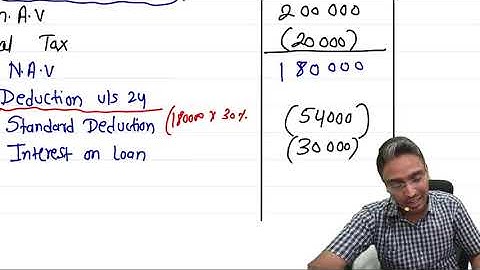 n.A.V 200000
al Tax (20000)
N.A.V 180000
Deduction u/s 24
Standard Deduction (18000 x 30% (54000)
Interest on Loan (30000)